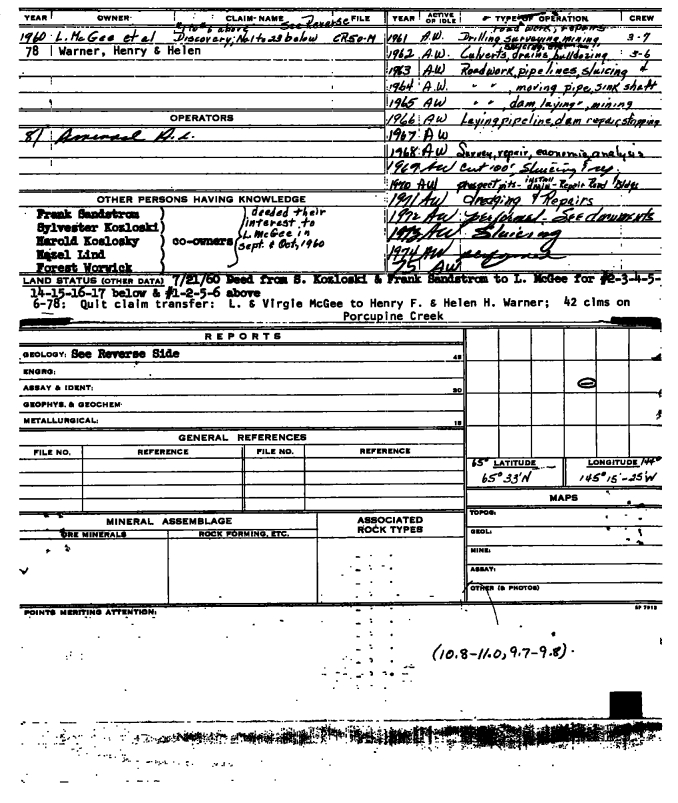 YEAR OWNER CLAIM-NAME See Reverse FILE
1 to 6 above
1960 L. McGee et al Discovery; No. 1 to 23 below CR50-M
78 Warner, Henry & Helen
OPERATORS
81
OTHER PERSONS HAVING KNOWLEDGE
Frank Sandstrom
Sylvester Kozloski
Harold Koslosky
Hazel Lind
Forest Worwick
co-owners
deeded their
interest to
L. McGee in
Sept. & Oct, 1960
YEAR ACTIVE OR IDLE TYPE OF OPERATION CREW
road work, repairs
1961 A.W. Drilling, surveying, mining 3-7
1962 A.W. Culverts, drains, bulldozing 3-6
1963 AW Roadwork, pipelines, sluicing
1964 A.W. " ", moving pipe, sink shaft
1965 AW " ", dam laying", mining
1966 AW Laying pipeline, dam repair, stripping
1967 AW
1968 AW Survey, repair, economic analysis
1969 AW Cut 100', Sluicing
1970 AW prospect pits - install drain - Repair Road & Bldgs
1971 AW dredging & Repairs
1972 AW performed - See documents
1973 AW Sluicing
1974 AW performed
75 AW
LAND STATUS (OTHER DATA) 7/21/60 Deed from S. Kozloski & Frank Sandstrom to L. McGee for #2-3-4-5-
14-15-16-17 below & #1-2-5-6 above
6-78: Quit claim transfer: L. & Virgie McGee to Henry F. & Helen H. Warner; 42 clms on
Porcupine Creek
REPORTS
GEOLOGY: See Reverse Side 45
ENGRG:
ASSAY & IDENT: 30
GEOPHYS. & GEOCHEM:
METALLURGICAL: 15
GENERAL REFERENCES
FILE NO. REFERENCE FILE NO. REFERENCE
65° LATITUDE LONGITUDE 144°
65° 33'N 145° 15'-25'W
MAPS
TOPOG:
GEOL:
MINE:
ASSAY:
OTHER (& PHOTOS)
MINERAL ASSEMBLAGE ASSOCIATED ROCK TYPES
ORE MINERALS ROCK FORMING, ETC.
POINTS MERITING ATTENTION: SP 7915
(10.8-11.0, 9.7-9.8).